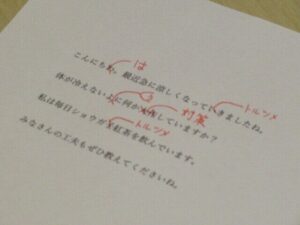 は
こんにちわ、最近急に涼しくなってきましたね。
トルツメ
体が冷えないよに何かしていますか?
対策
私は毎日ショウガ紅茶を飲んでいます。
トルツメ
みなさんの工夫もぜひ教えてくださいね。